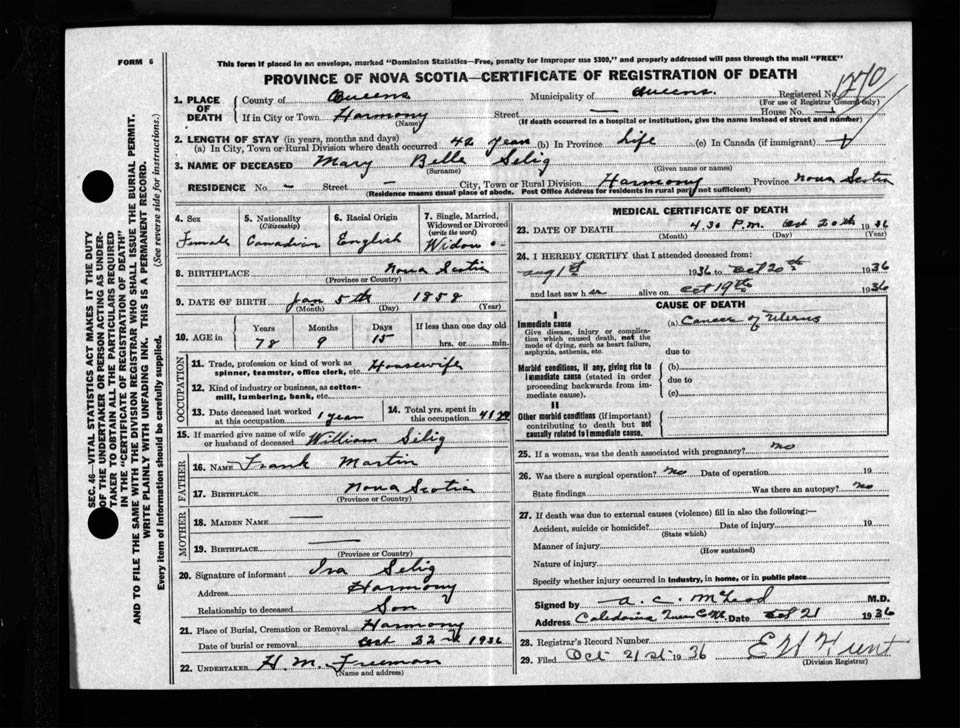 FORM 6
This form if placed in an envelope, marked "Dominion Statistics—Free, penalty for improper use $300," and properly addressed will pass through the mail "FREE"
PROVINCE OF NOVA SCOTIA—CERTIFICATE OF REGISTRATION OF DEATH
Registered No. 1270
(For use of Registrar General only)
1. PLACE OF DEATH { County of Queens Municipality of Queens.
If in City or Town Harmony Street — House No. —
(Name) (If death occurred in a hospital or institution, give the name instead of street and number)
2. LENGTH OF STAY (in years, months and days)
(a) In City, Town or Rural Division where death occurred 42 years (b) In Province Life (c) In Canada (if immigrant)
3. NAME OF DECEASED Mary Belle Selig
(Surname) (Given name or names)
RESIDENCE No. - Street - City, Town or Rural Division Harmony Province Nova Scotia
(Residence means usual place of abode. Post Office Address for residents in rural parts not sufficient)
4. Sex Female
5. Nationality (Citizenship) Canadian
6. Racial Origin English
7. Single, Married, Widowed or Divorced (write the word) Widow
8. BIRTHPLACE Nova Scotia
(Province or Country)
9. DATE OF BIRTH Jan 5th 1858
(Month) (Day) (Year)
10. AGE in Years Months Days If less than one day old
78 9 15 hrs. or min.
OCCUPATION
11. Trade, profession or kind of work as spinner, teamster, office clerk, etc. Housewife
12. Kind of industry or business, as cotton-mill, lumbering, bank, etc.
13. Date deceased last worked at this occupation 1 year
14. Total yrs. spent in this occupation 41 yr
15. If married give name of wife or husband of deceased William Selig
FATHER
16. NAME Frank Martin
17. BIRTHPLACE Nova Scotia
(Province or Country)
MOTHER
18. MAIDEN NAME —
19. BIRTHPLACE —
(Province or Country)
20. Signature of informant Ira Selig
Address Harmony
Relationship to deceased Son
21. Place of Burial, Cremation or Removal Harmony
Date of burial or removal Oct 22nd 1936
22. UNDERTAKER H. M. Freeman
(Name and address)
MEDICAL CERTIFICATE OF DEATH
23. DATE OF DEATH 4.30 P.M. Oct 20th 1936
(Month) (Day) (Year)
24. I HEREBY CERTIFY that I attended deceased from:
Aug 1st 1936 to Oct 20th 1936
and last saw her alive on Oct 19th 1936
CAUSE OF DEATH
I
Immediate cause
Give disease, injury or complication which caused death, not the mode of dying, such as heart failure, asphyxia, asthenia, etc.
(a) Cancer of Uterus
due to
Morbid conditions, if any, giving rise to immediate cause (stated in order proceeding backwards from immediate cause).
(b)
due to
(c)
II
Other morbid conditions (if important) contributing to death but not causally related to immediate cause.
25. If a woman, was the death associated with pregnancy? no
26. Was there a surgical operation? No Date of operation 19
State findings Was there an autopsy? No
27. If death was due to external causes (violence) fill in also the following:—
Accident, suicide or homicide? Date of injury 19
(State which)
Manner of injury
(How sustained)
Nature of injury
Specify whether injury occurred in industry, in home, or in public place
Signed by A. C. McLeod M.D.
Address Caledonia Queens Co. Date Oct 21 1936
28. Registrar's Record Number
29. Filed Oct 21st 1936 E H Hunt
(Division Registrar)
SEC. 46—VITAL STATISTICS ACT MAKES IT THE DUTY
OF THE UNDERTAKER OR PERSON ACTING AS UNDER-
TAKER TO OBTAIN ALL THE PARTICULARS REQUIRED
IN THE "CERTIFICATE OF REGISTRATION OF DEATH"
AND TO FILE THE SAME WITH THE DIVISION REGISTRAR WHO SHALL ISSUE THE BURIAL PERMIT.
WRITE PLAINLY WITH UNFADING INK. THIS IS A PERMANENT RECORD.
Every item of information should be carefully supplied. (See reverse side for instructions.)